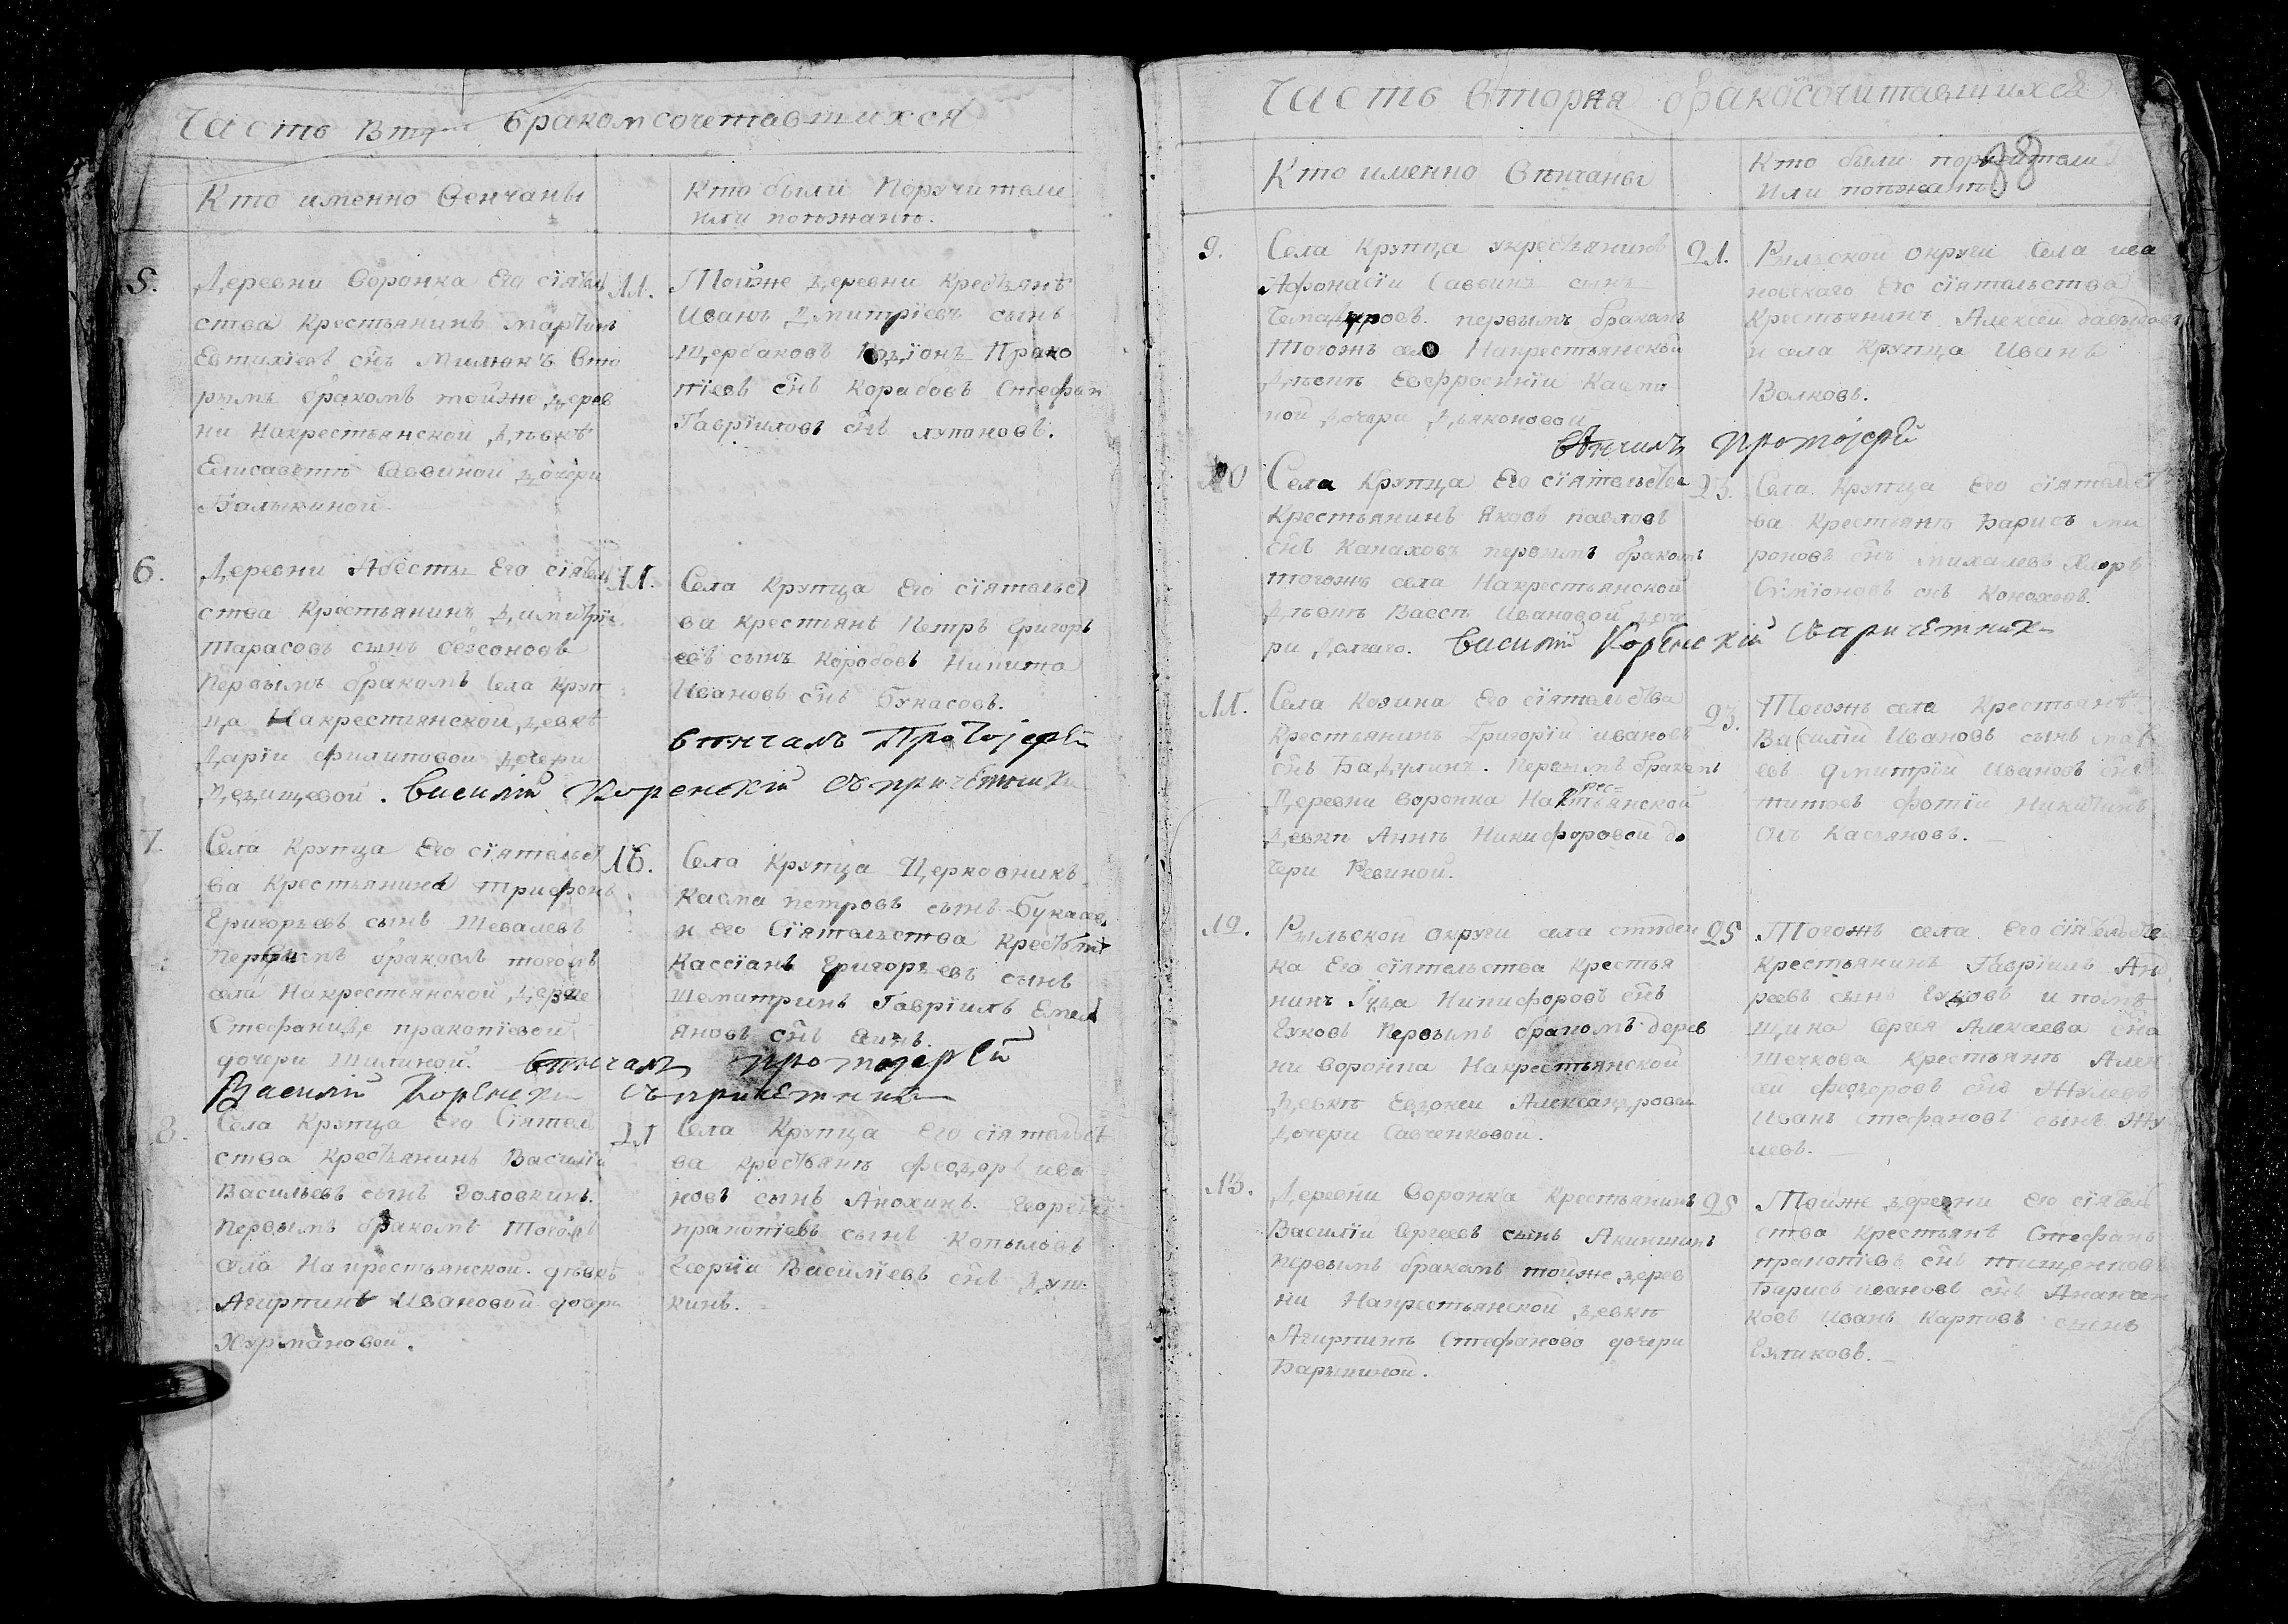 Часть бракомсочетавшихся
Кто именно венчаны
Кто были Поручители
или поезжане.
5.
Деревни Воронка Его сіятель
ства Крестьянинъ Мартинъ
Евтихіевъ снъ Милюкъ вто
рымъ бракомъ тойже дерев
ни Накрестьянской девкѣ
Елисаветѣ Саввиной дочери
Балыкиной
11.
Тойже деревни Крестьянѣ
Иванъ Дмитріевъ сынъ
Щербаковъ Прако
піевъ снъ Корабовъ Стефан
Гавріиловъ снъ лупановъ.
6.
Деревни Его сіятель
ства Крестьянинъ Димитрі
тарасовъ сынъ безсоновъ
Первымъ бракомъ Села Круп
ца Накрестьянской девкѣ
Даріи филиповой дочери
11.
Села Крупца Его сіятельст
ва крестьянѣ Петръ Григорь
евъ сынъ Коробовъ Никита
Ивановъ снъ Букасовъ.
венчалъ Протоіерей
Василій Коренскій съ причетники
7.
Села Крупца Его сіятельст
ва Крестьянина трифонъ
Григорьевъ сынъ Шевалевъ
первымъ бракомъ тогожъ
села Накрестьянской девке
Стефаниде пракопіевой
дочери Шилиной.
16.
Села Крупца Церковникъ
Касма петровъ сынъ Букасов
и его Сіятельства Крестьяне
Кассіанъ Григорьевъ сынъ
Шематринъ Гавріилъ Емел
яновъ снъ
венчалъ протоіерей
Василій Коренскій съ причетники
8.
Села Крупца Его Сіятель
ства Крестьянинъ Василій
Васильевъ сынъ Головкинъ.
первымъ бракомъ тогожъ
села Накрестьянской девкѣ
Агирпинѣ Ивановой дочери
Хурмановой.
21
Села Крупца Его сіятельст
ва крестьянѣ феодоръ ива
новъ сынъ Анохинъ. Георгій
пракопіевъ сынъ Копыловъ
Георгіи Василіевъ снъ душ
кинъ.
Часть вторая бракосочитавшихся
88
Кто именно Венчаны
Кто были поручители
Или поезжанѣ
9.
Села Крупца крестьянинъ
Афонасіи Саввинъ сынъ
первымъ бракомъ
тогожъ село Накрестьянской
девкѣ Евфросиніи Касми
ной дочери Дьяконовой
21.
Рыльской округи Села ива
новскаго Его сіятельства
крестьянинъ Алексеи
и села Крупца Иванъ
Волковъ.
венчалъ Протоіерей
10
Села Крупца Его сіятельства
крестьянинъ Яковъ павловъ
снъ Канаховъ первымъ бракомъ
тогожъ села Накрестьянской
девкѣ Вассѣ Ивановой доче
ри
23.
Села Крупца Его сіятельст
ва Крестьянѣ Барисъ ми
роновъ снъ михалевъ
Симіоновъ снъ Конаховъ.
Василій Коренскій съпричетники
11.
Села Козина Его сіятельства
Крестьянинъ Григорій ивановъ
снъ Бадулинъ. Первымъ бракомъ
Деревни воронка Накрестьянской
девки Аннѣ Никифоровой до
чери Ревиной.
23.
Тогожъ села Крестьянѣ
Василій Ивановъ сынъ
евъ дмитрій Ивановъ снъ
титовъ фотіи никитинъ
снъ Касьяновъ.
12.
Рыльской округи села студен
ка Его сіятельства крестья
нинъ Гуда Никифоровъ снъ
Гуковъ Первымъ бракомъ дерев
ни воронка Накрестьянской
девкѣ Евдокеи Александровой
дочери Савченковой.
25
Тогожъ села Его сіятельства
Крестьянинъ Гавріилъ Анд
реевъ сынъ Гуковъ и помѣ
щика Сергея Алексаева сна
шечкова крестьянѣ Алек
сеи феодоровъ снъ Жулевъ
Иванъ стефановъ сынъ Жу
левъ.
13.
Деревни Воронка крестьянинъ
Василій Сергеевъ сынъ Акиншинъ
первымъ бракомъ тойже дерев
ни Накрестьянской девкѣ
Агирпинѣ Стефаново дочери
Барыкиной.
25
Тойже деревни Его сіятель
ства Крестьянѣ Стефанъ
пракопіевъ снъ тищенковъ
Барисъ ивановъ снъ Ананчен
ковъ Иванъ Карповъ сынъ